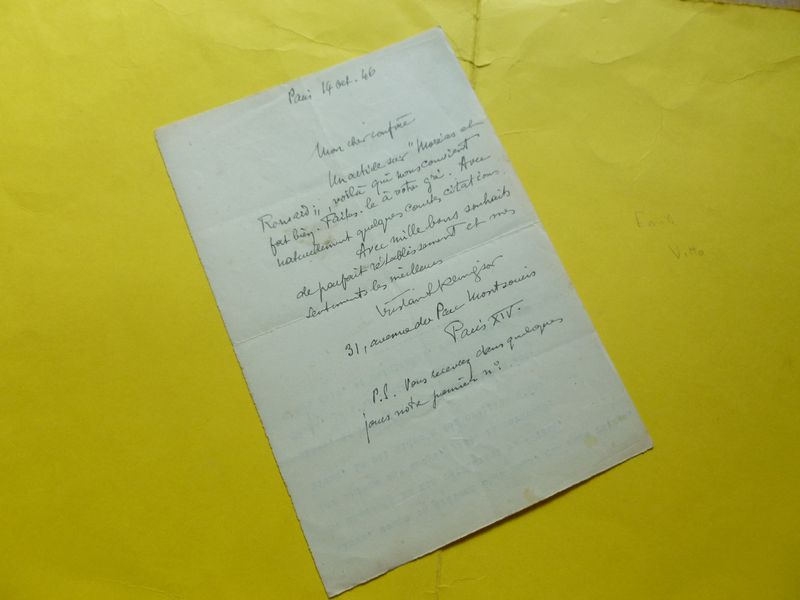 Paris 14 oct. 46
Mon cher confrère
Un article sur "Moréas et
Ronsard", voilà qui nous convient
fort bien. Faites-le à votre gré. Avec
naturellement quelques courtes citations.
Avec mille bons souhaits
de parfait rétablissement et mes
sentiments les meilleurs
Tristan Klingsor
31, avenue du Parc Montsouris
Paris XIV.
P.S. Vous recevrez dans quelques
jours notre premier nº.